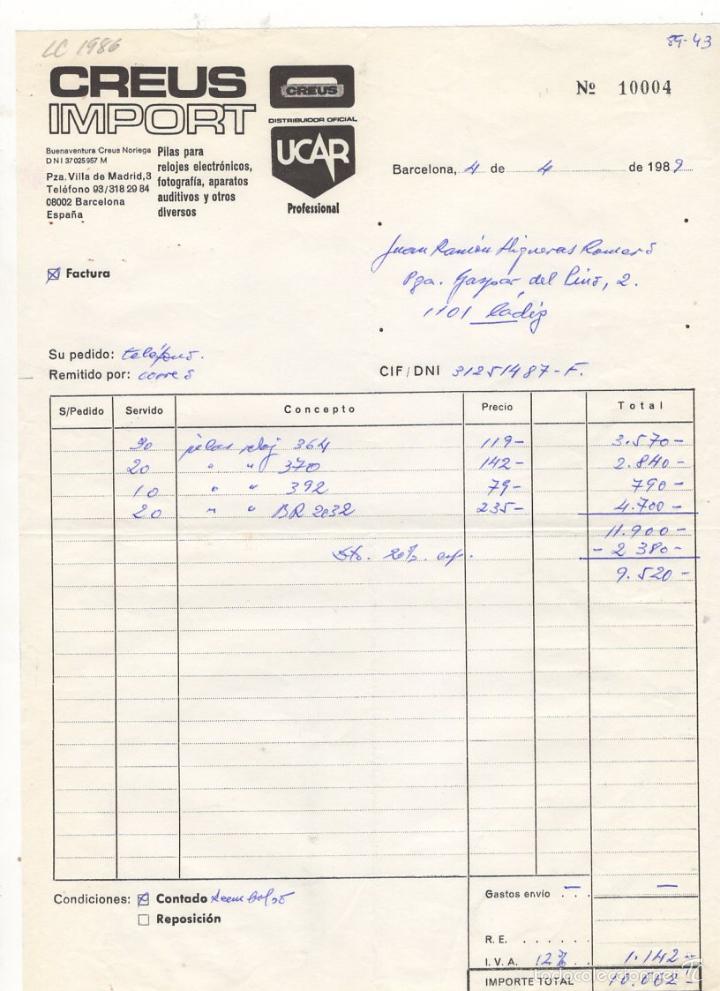 LC 1986
89-43
CREUS
IMPORT
CREUS
DISTRIBUIDOR OFICIAL
UCAR
Professional
Nº 10004
Buenaventura Creus Noriega
DNI 37025957 M
Pza. Villa de Madrid,3
Teléfono 93/318 29 84
08002 Barcelona
España
Pilas para
relojes electrónicos,
fotografía, aparatos
auditivos y otros
diversos
Barcelona, 4 de 4 de 1989
Juan Ramón Higueras Romero
Pza. Gaspar del Pino, 2.
1101 Cádiz
Factura
Su pedido: teléfono.
Remitido por: correo
CIF/DNI 31251487-F.
S/Pedido Servido Concepto Precio Total
30 pilas reloj 364 119- 3.570-
20 " " 370 142- 2.840-
10 " " 392 79- 790-
20 " " BR 2032 235- 4.700-
11.900-
Dto. 20% - 2 380-
9.520-
Condiciones: Contado Reembolso
Reposición
Gastos envío . . . —
R. E. . . . . . .
I. V. A. 12% . . 1.142-
IMPORTE TOTAL 10.662-
todocoleccion.net